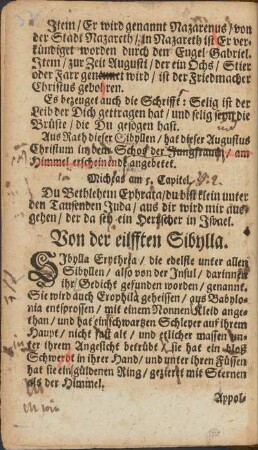 Item / Er wird genannt Nazarenus / von
der Stadt Nazareth / In Nazareth ist Er ver-
kündiget worden durch den Engel Gabriel.
Item / zur Zeit Augusti / der ein Ochs / Stier
oder Farr genennet wird / ist der Friedmacher
Christus gebohren.
Es bezeuget auch die Schrifft: Selig ist der
Leib der Dich getragen hat / und selig seyn die
Brüste / die Du gesogen hast.
Aus Rath dieser Sibyllen / hat dieser Augustus
Christum in dem Schoß der Jungfrauen / am
Himmel erscheinende angebetet.
Michäas am 5. Capitel.
Du Bethlehem Ephrata / du bist klein unter
den Tausenden Juda / aus dir wird mir aus-
gehen / der da sey ein Herrscher in Israel.
Von der eilfften Sibylla.
Sibylla Erythræa / die edelste unter allen
Sibyllen / also von der Insul / darinnen
ihr Gedicht gefunden worden / genannt.
Sie wird auch Erophila geheissen / aus Babylo-
nia entsprossen / mit einem Nonnenkleid ange-
than / und hat ein schwartzen Schleyer auf ihrem
Haupt / nicht fast alt / und etlicher massen un-
ter ihrem Angesicht betrübt / sie hat ein bloß
Schwerdt in ihrer Hand / und unter ihren Füssen
hat sie ein güldenen Ring / gezieret mit Sternen
als der Himmel.
Appol-